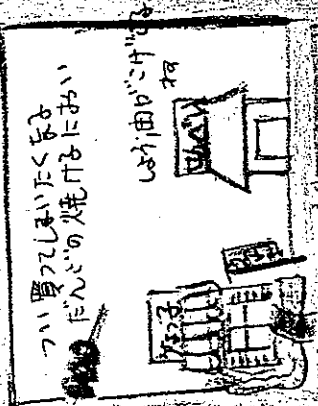 つい買ってしまいたくなる
だんごの焼けるにおい
しょう油がこげてる
ね